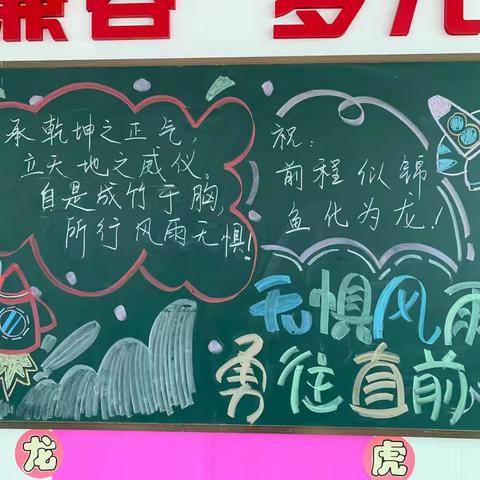 兼容 多元
承乾坤之正气,
立天地之威仪。
自是成竹于胸,
所行风雨无惧!
祝:
前程似锦
鱼化为龙!
无惧风雨
勇往直前
龙
虎